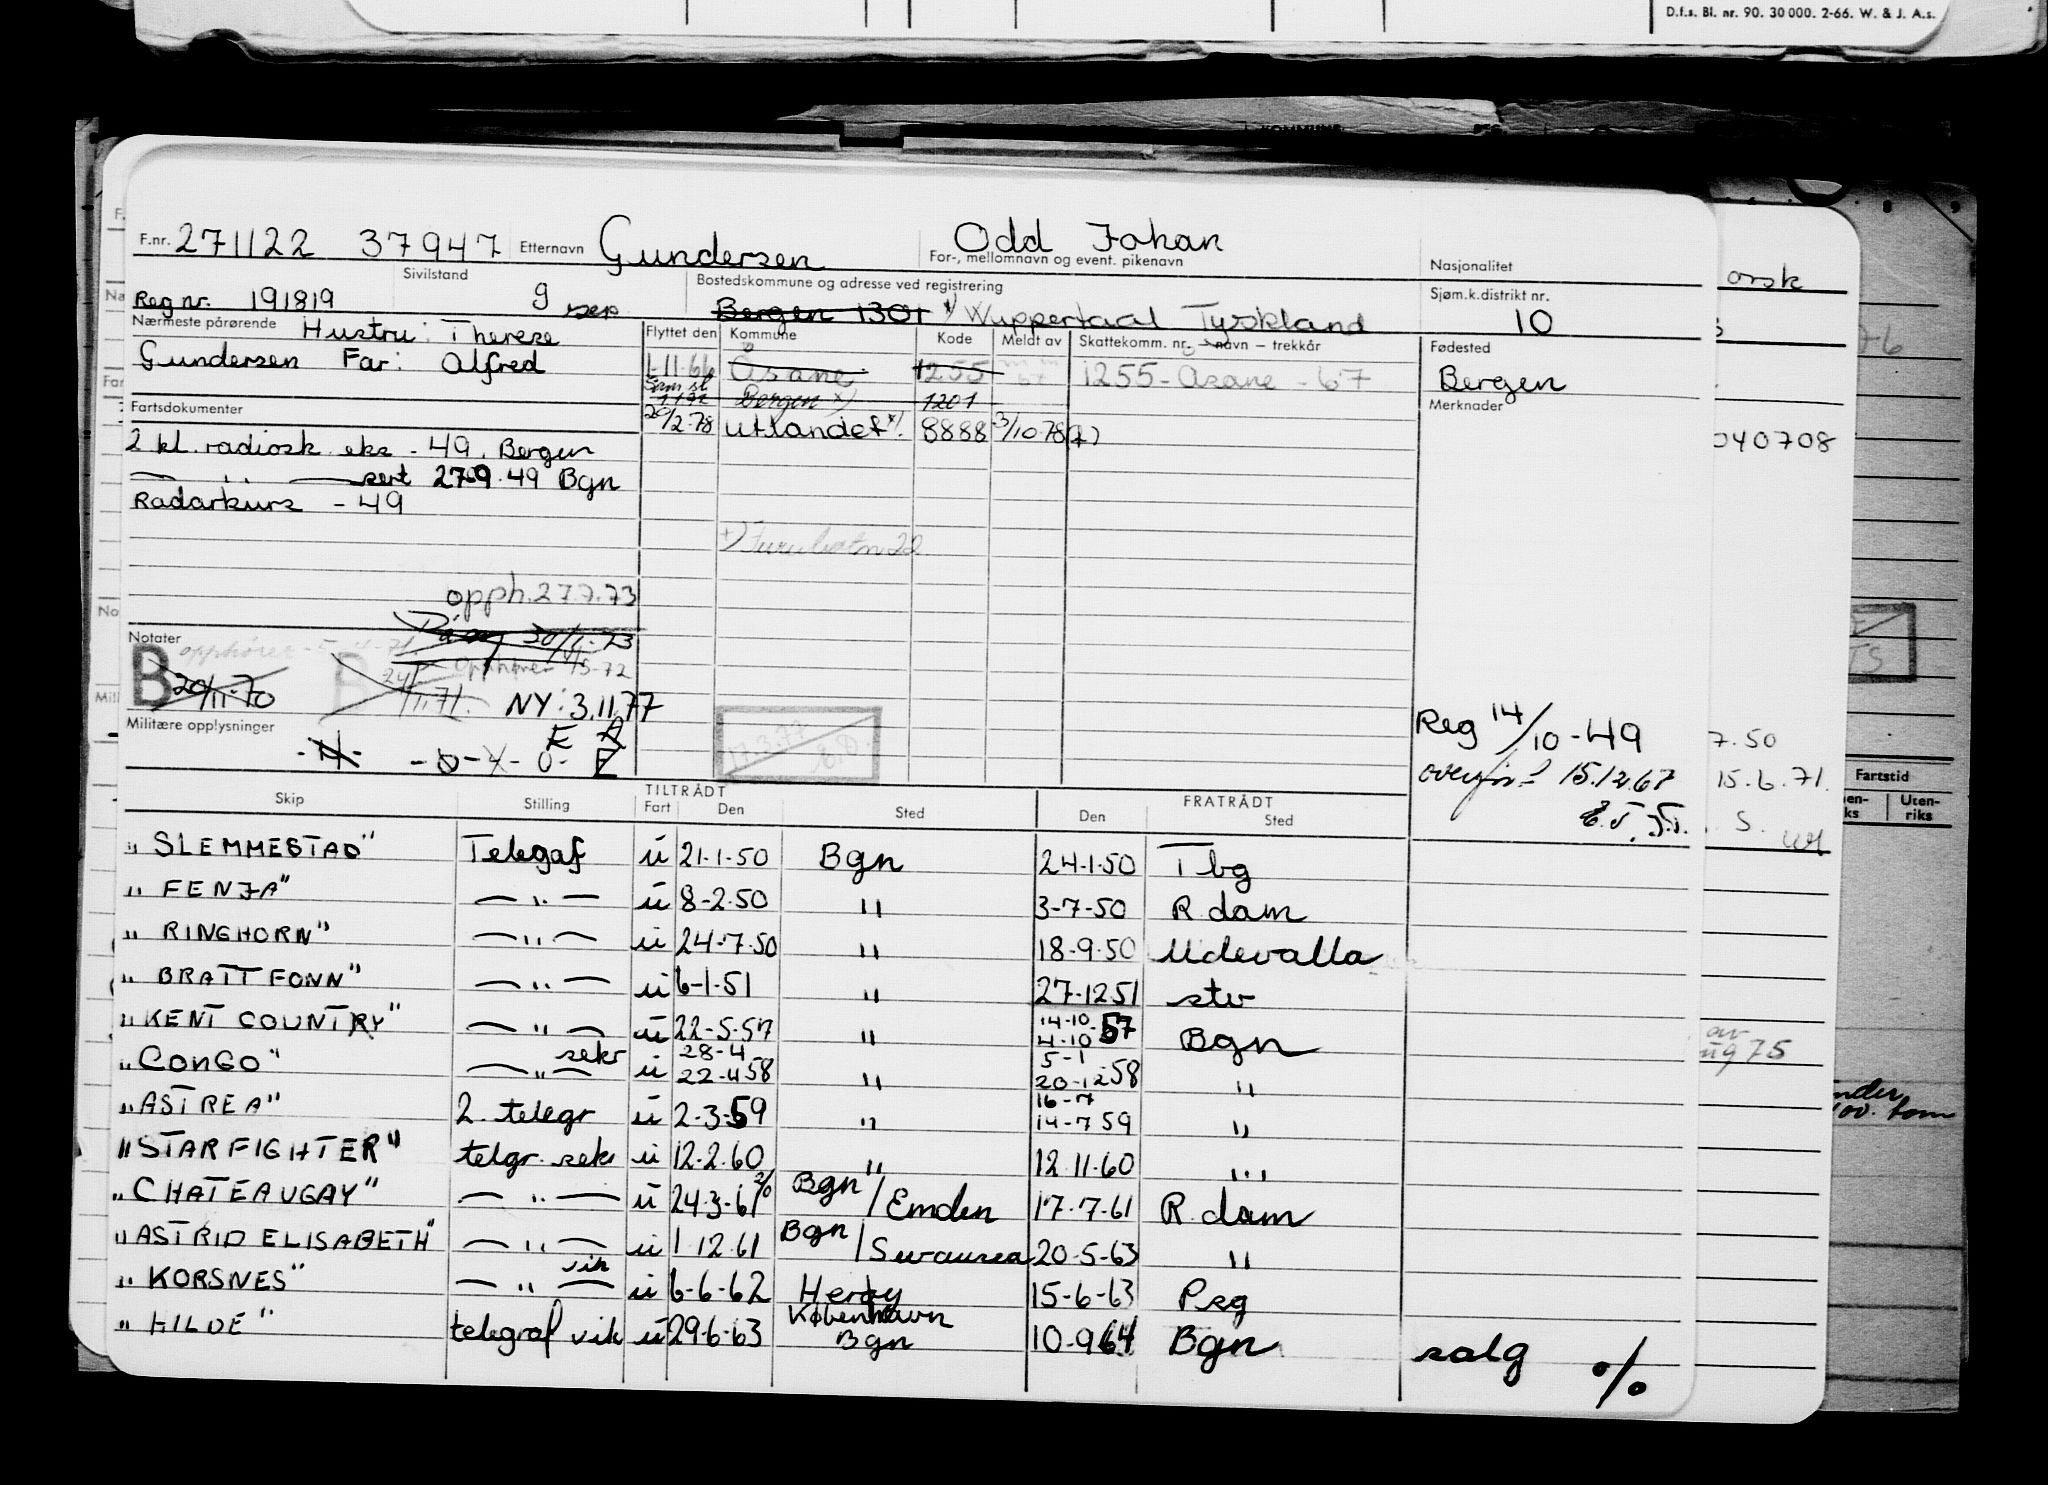 D.f.s. Bl. nr. 90. 30000. 2-66. W. & J. A.s.
F.nr. 271122 37947 Etternavn Gundersen Odd Johan
For-, mellomnavn og event. pikenavn
Nasjonalitet
orsk
Sivilstand
Bostedskommune og adresse ved registrering
Sjøm.k.distrikt nr.
Reg nr. 191819 g sep Bergen 1301 x) Wuppertaal Tyskland 10
Nærmeste pårørende Hustru: Therese
Flyttet den Kommune Kode Meldt av Skattekomm. nr. - navn - trekkår Fødested
Gundersen Far: Alfred 1-11-66 Åsane 1255 1255 - Åsane - 67 Bergen
Bergen x) 1201
Fartsdokumenter
Merknader
20/2-78 utlandet x). 8888 3/10-78
040708
2 kl. radiosk. eks - 49. Bergen
— ,, — sert 27.9.49 Bgn
Radarkurs - 49
opph. 27.7.73
Notater
B 20/11-70
opphører 1/5-72
NY: 3.11.77
Militære opplysninger
17.3.77
Reg 14/10-49
7.50
overført 15.12.67
15.6.71.
Fartstid
Uten-
riks
TILTRÅDT FRATRÅDT
Skip Stilling Fart Den Sted Den Sted
" SLEMMESTAD" Telegaf u 21-1-50 Bgn 24-1-50 Tbg
" FENJA" — " — u 8-2-50 " 3-7-50 R.dam
" RINGHORN" — " — u 24-7-50 " 18-9-50 Udevalla
" BRATTFONN" — " — u 6-1-51 " 27-12 51 stv
" KENT COUNTRY" — " — u 22-5-57 " 14-10 4-10 57 Bgn
" CONGO" — " — sekr u 28-4 22-4 58 " 5-1 20-12 58 "
" ASTREA" 2. telegr u 2-3-59 " 16-7 14-7 59 "
" STARFIGHTER" telgr. sekr u 12-2-60 " 12.11.60 "
" CHATEAUGAY" — " — u 24-3-61 Bgn / Emden 17-7-61 R.dam
" ASTRID ELISABETH" — " — u 1 12.61 Bgn / Swansea 20-5-63 "
" KORSNES" — " — vik u 6-6-62 Herøy 15-6-63 Psg
" HILDE" telegraf vik u 29-6-63 København Bgn 10-9 64 Bgn salg %